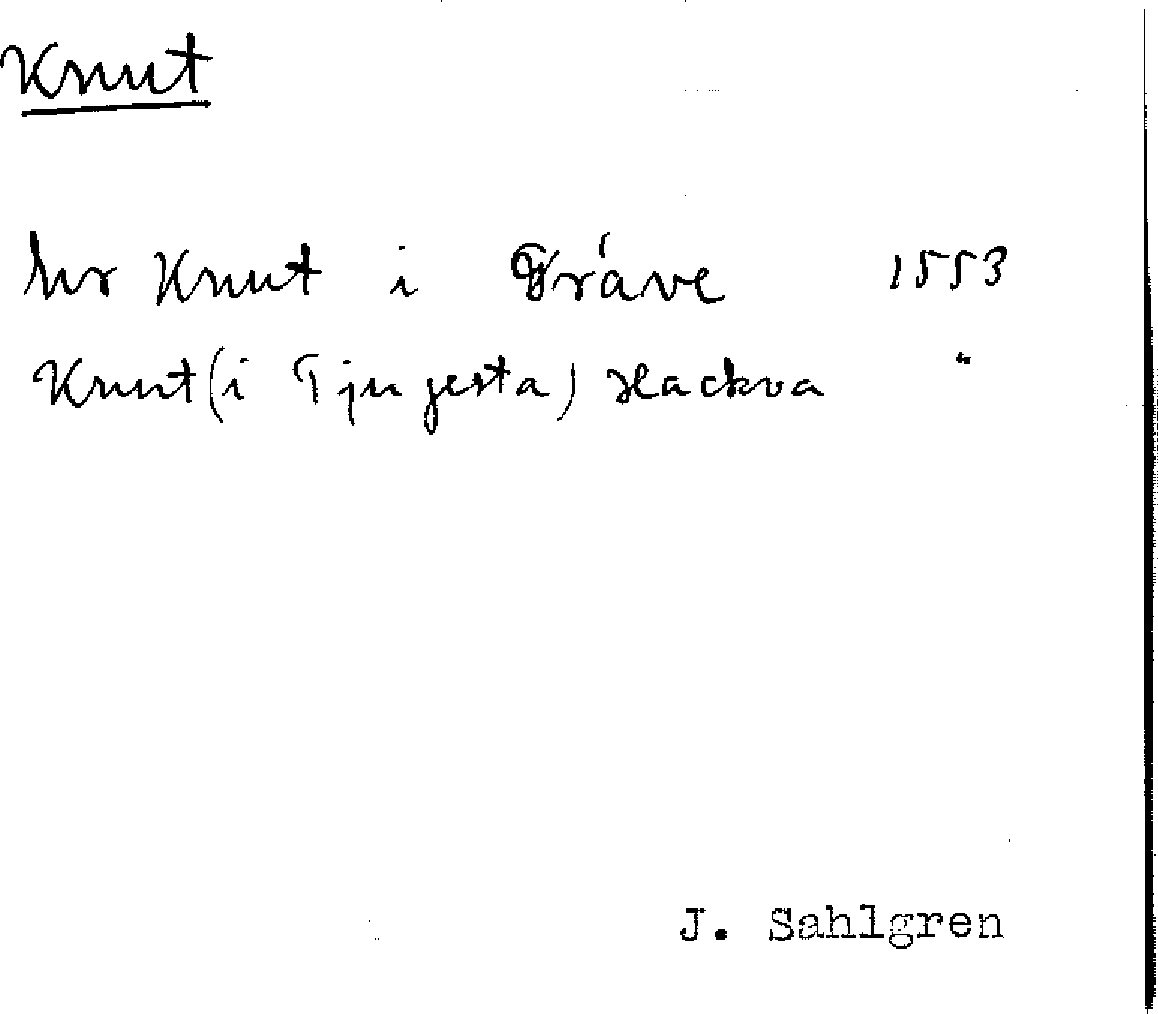 Knut
hr Knut i Gråve 1553
Knut (i Tjugesta) Hackva "
J. Sahlgren